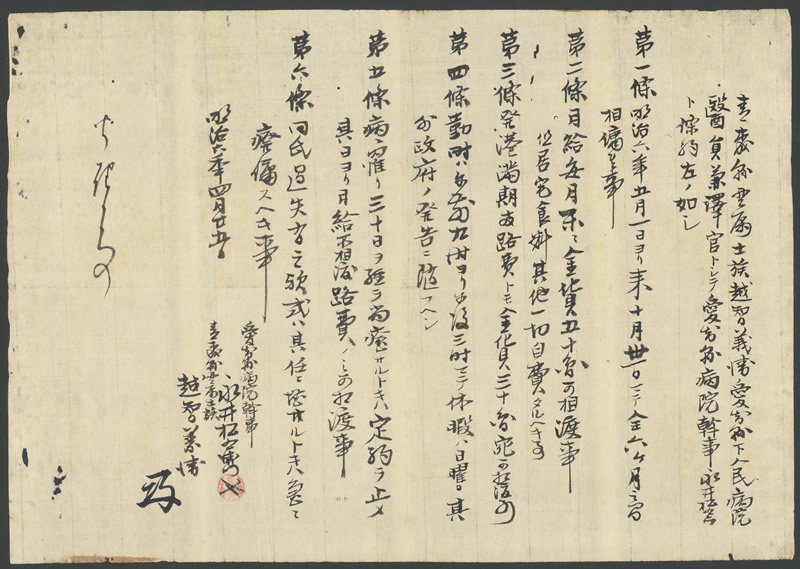 青森縣貫属士族越智義勝愛知縣下人民病院
醫員兼譯官トシテ愛知縣病院幹事永井松右
ト條約左ノ如シ
第一條明治六年五月一日ヨリ来十月卅一日マテ全六ケ月之間
相傭事
第二條月給毎月末ニ金貨五十圓可相渡事
但居宅食料其他一切自費タルヘキ事
第三條発港満期両路費トモ金貨三十圓宛可
第四條勤時ハ午前九時ヨリ午後三時マテ休暇ハ日曜日其
外政府ノ発告ニ随フヘシ
第五條病ニ罹リ三十日ヲ経テ尚癒サルトキハ定約ヲ止メ
其日ヨリ月給不相渡路費ノミ可相渡事
第六條同氏過失有之歟或ハ其任ニ堪サルトキハ急ニ
癈傭スヘキ事
明治六年四月廿五日
愛知縣病院幹事
永井松右
青森縣貫属士族
越智義勝